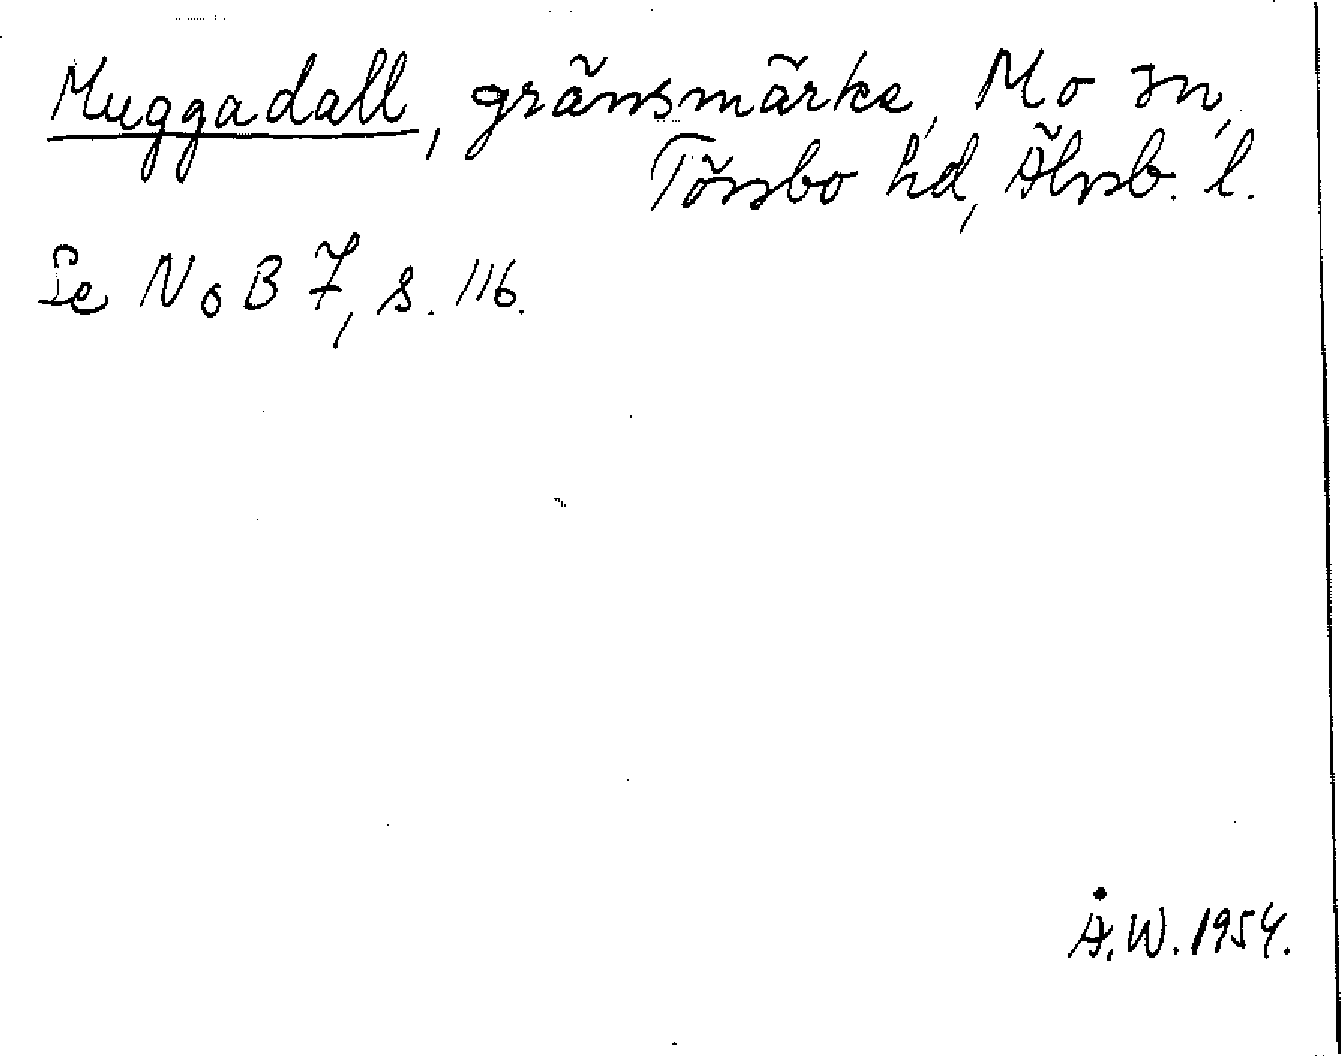 Muggadall, gränsmärke, Mo sn,
Tössbo hd, Älvsb. l.
Se NoB 7, s. 116.
Å.W. 1954.